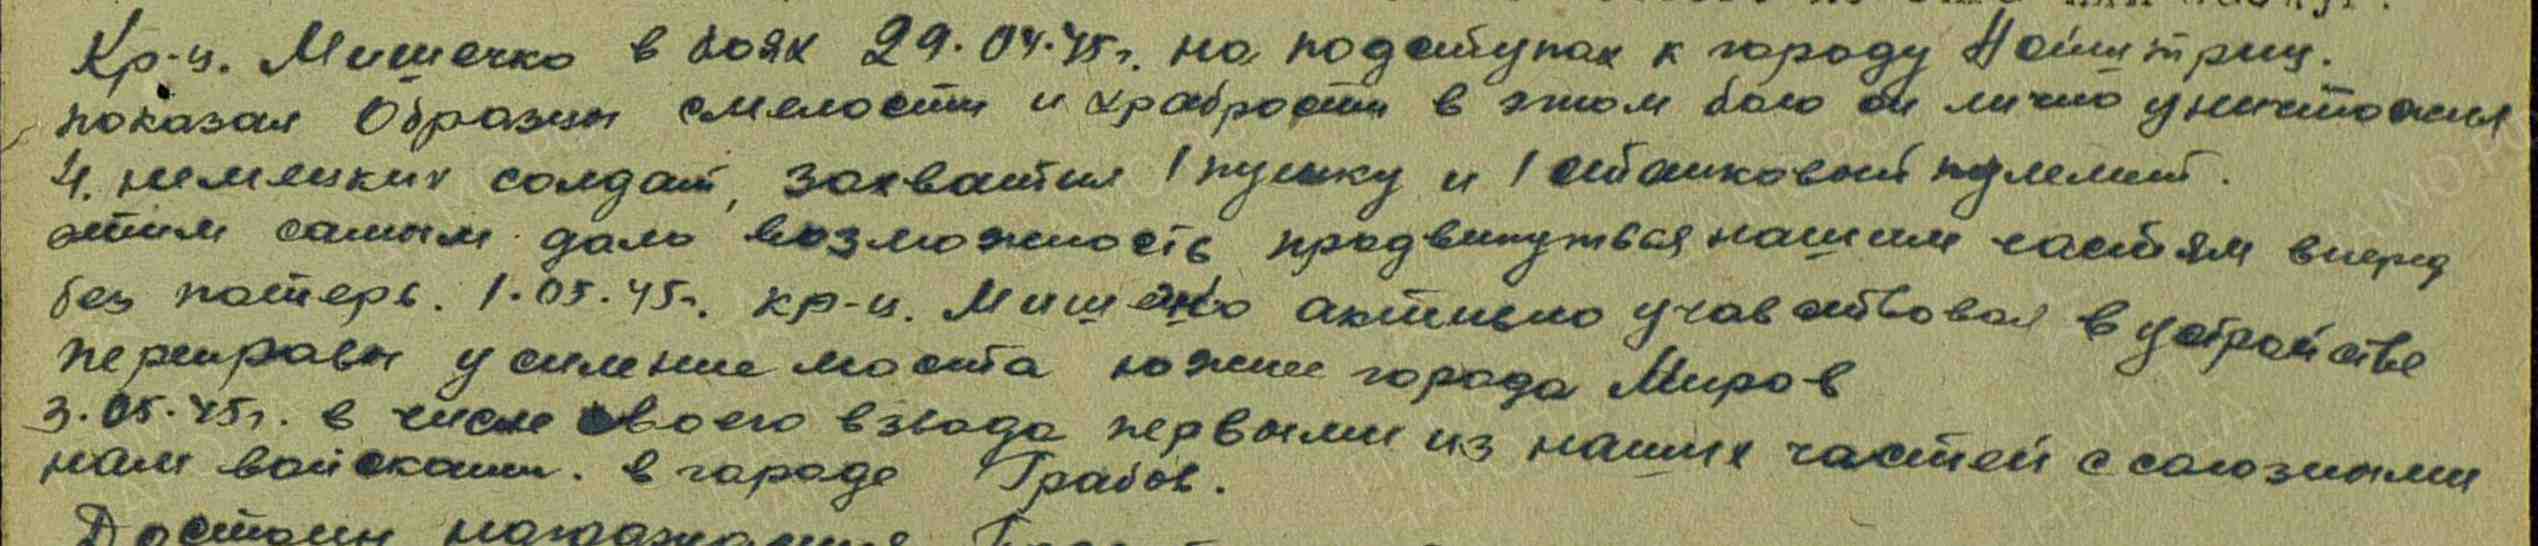 Кр-ц. Мишечко в боях 29.04.45г. на подступах к городу
показал Образцы смелости и храбрости в этом бою он лично уничтожил
4. немецких солдат, захватил 1 пушку и 1 станковый пулемет.
этим самым дало возможность продвинуться нашим частям вперед
без потерь. 1.05.45г. кр-ц. активно учавствовал в устройстве
переправы усиление моста южнее города Миров
3.05.45г. в числе своего взвода первыми из наших частей с союзными
нам войсками. в городе Грабов.
Достоин